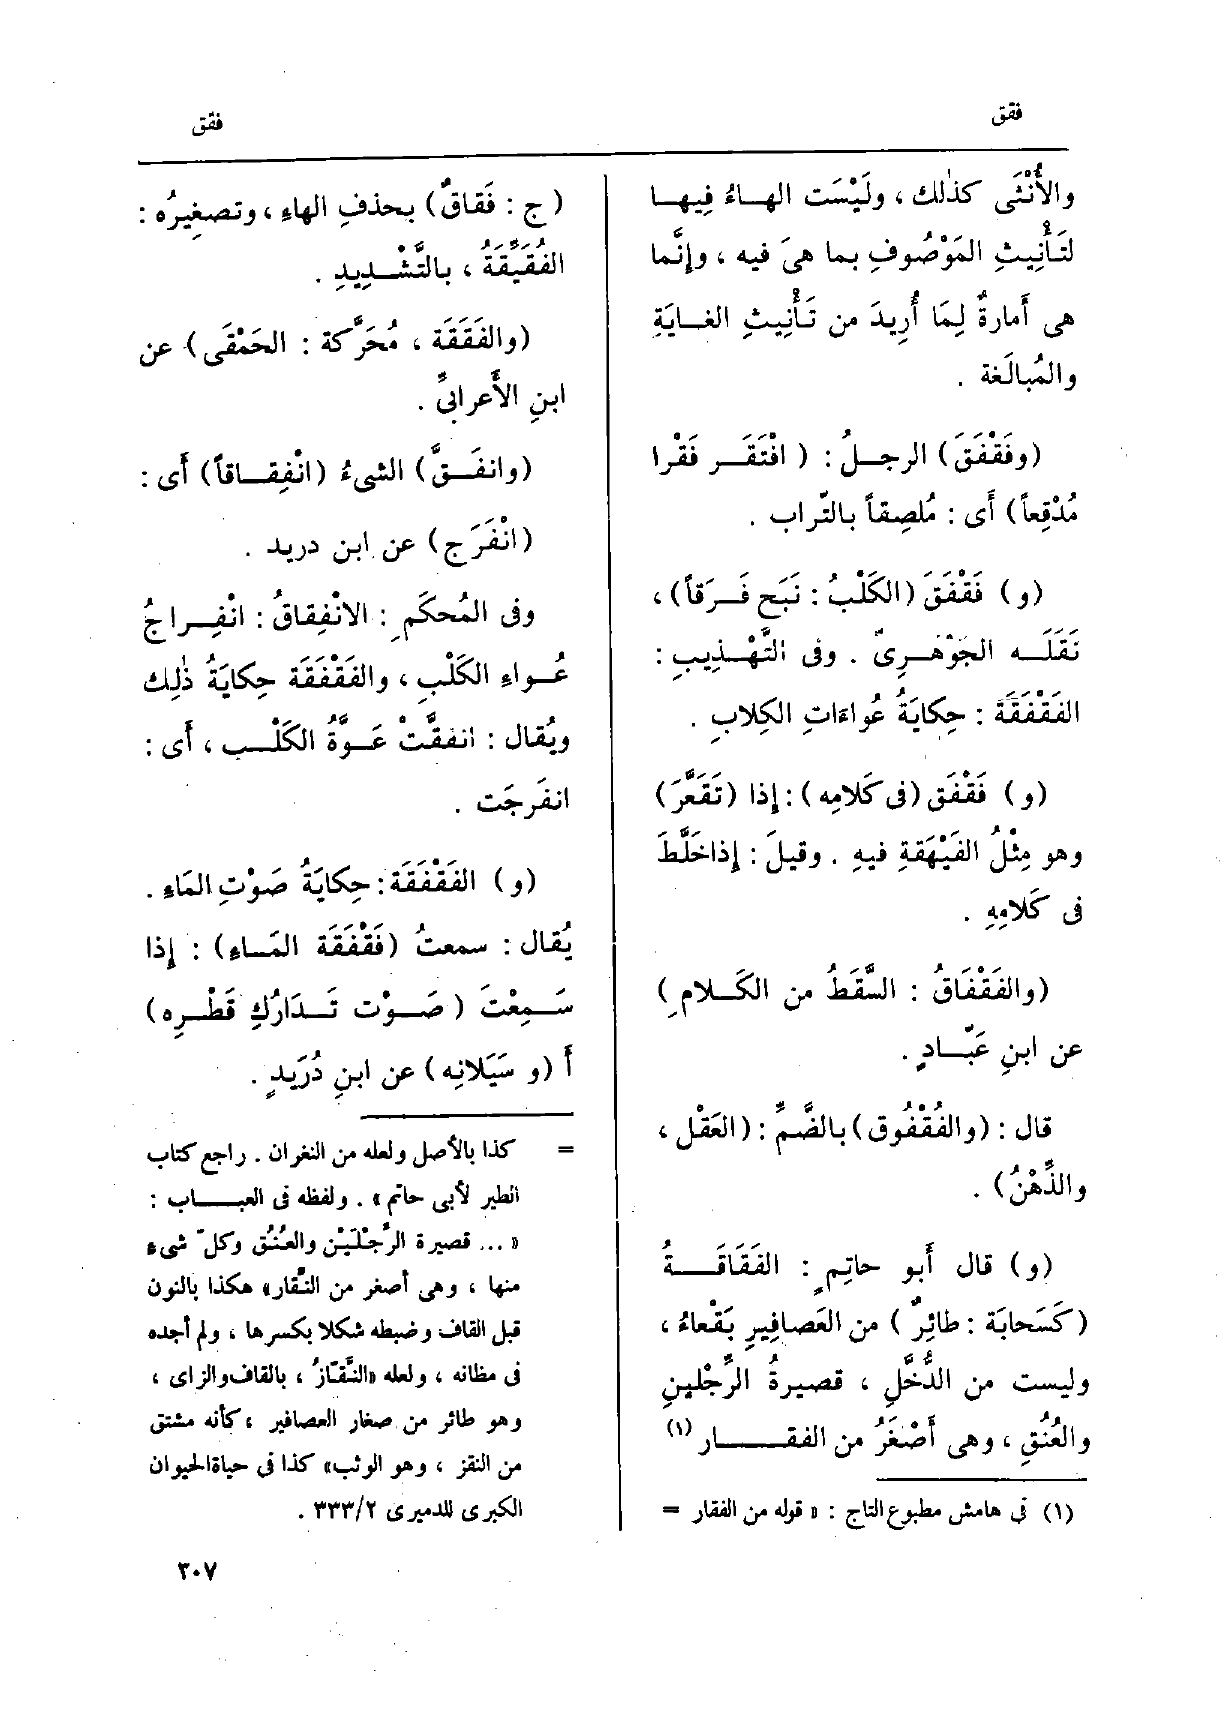 فقق
فقق
والأُنْثَى كذٰلك ، ولَيْسَت الهـاءُ فِيهـا
لتَـأْنِيثِ المَوْصُوفِ بما هىَ فيه ، وإنَّما
هى أَمارةٌ لِمَا أُرِيدَ من تَـأْنِيثِ الغـايَةِ
والمُبالَغة .
(وفَقْفَقَ) الرجـلُ : ( افْتَقَـر فَقْرا
مُدْقِعاً) أَى : مُلصِقاً بالتّراب .
(و) فَقْفَقَ (الكَلْبُ : نَبَح فَـرَقاً) ،
نَقَلَـه الجَوْهَرِىّ . وفى التَّهْـذِيبِ :
الفَقْفَقَة : حِكايَةُ عُواءَاتِ الكِلابِ .
(و) فَقْفَق (فى كَلامِه) : إذا (تَقَعَّرَ)
وهو مِثْلُ الفَيْهَقةِ فيهِ . وقيلَ : إذاخَلَّطَ
فى كَلامِهِ .
(والفَقْفَاقُ : السَّقَطُ من الكَـلامِ)
عن ابنِ عَبّـادٍ .
قال : (والفُقْفُوق) بالضَّمِّ : (العَقْل ،
والذِّهْنُ) .
(و) قال أَبو حاتِمٍ : الفَقَاقَـــةُ
(كَسَحابَة : طائِرٌ ) من العَصافِيرِ بَقْعاءُ ،
وليست من الدُّخَّلِ ، قصيرةُ الرِّجْلينِ
والعُنُقِ ، وهى أَصْغَرُ من الفقـــــار (١)
(١) فى هامش مطبوع التاج : « قوله من الفقار =
( ج : فَقاقٌ) بحذفِ الهاءِ ، وتصغِيرُه :
الفُقَيِّقَةُ ، بالتَّشْـدِيدِ .
(والفَقَقَة ، مُحَرَّكة : الحَمْقَى) عن
ابنِ الأَعرابىِّ .
(وانفَــقَّ) الشىءُ (انْفِقـاقاً) أَى :
(انْفَرَج) عن ابن دريد .
وفى المُحكَمِ : الانْفِقاقُ : انْفِـراجُ
عُـواءِ الكَلْبِ ، والفَقْفَقَة حِكايَةُ ذٰلِك
ويُقال : انفقَّتْ عَـوَّةُ الكَلْــب ، أَى :
انفَرجَت .
(و) الفَقْفَقَة : حِكايَةُ صَوْتِ المَاءِ .
يُقال : سمعتُ (فَقْفَقَة المَـاءِ) : إذا
سَـمِعْتَ ( صَـوْت تَـدَارُكِ قَطْـرِه )
أَ (و سَيَلانِه) عن ابنِ دُرَيدٍ .
= كذا بالأصل ولعله من النغران . راجع كتاب
الطير لأبى حاتم » . ولفظه فى العبــاب :
« ... قصيرة الرِّجْلَيْنِ والعُنُق وكلّ شىء
منها ، وهى أصغر من النِّقار» هكذا بالنون
قبل القاف وضبطه شكلا بكسرها ، ولم أجده
فى مظانه ، ولعله «النَّقّازُ ، بالقاف والزاى ،
وهو طائر من صغار العصافير ، كأنه مشتق
من النقز ، وهو الوثب» كذا فى حياةالحيوان
الكبرى للدميرى ٣٣٣/٢ .
٣٠٧